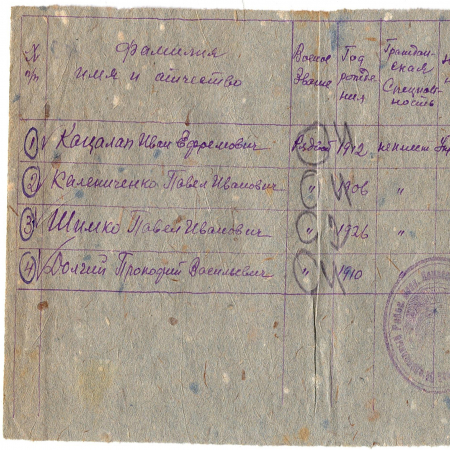 № п/п Фамилия имя и отчество Военное Звание Год рождения Гражданская Специальность
1 Кацалап Иван Ефремович Рядовой 1912 не имеет
2 Калениченко Павел Иванович " 1906 "
3 Шимко Павел Иванович " 1926 "
4 Долгий Прокофий Васильевич " 1910 "